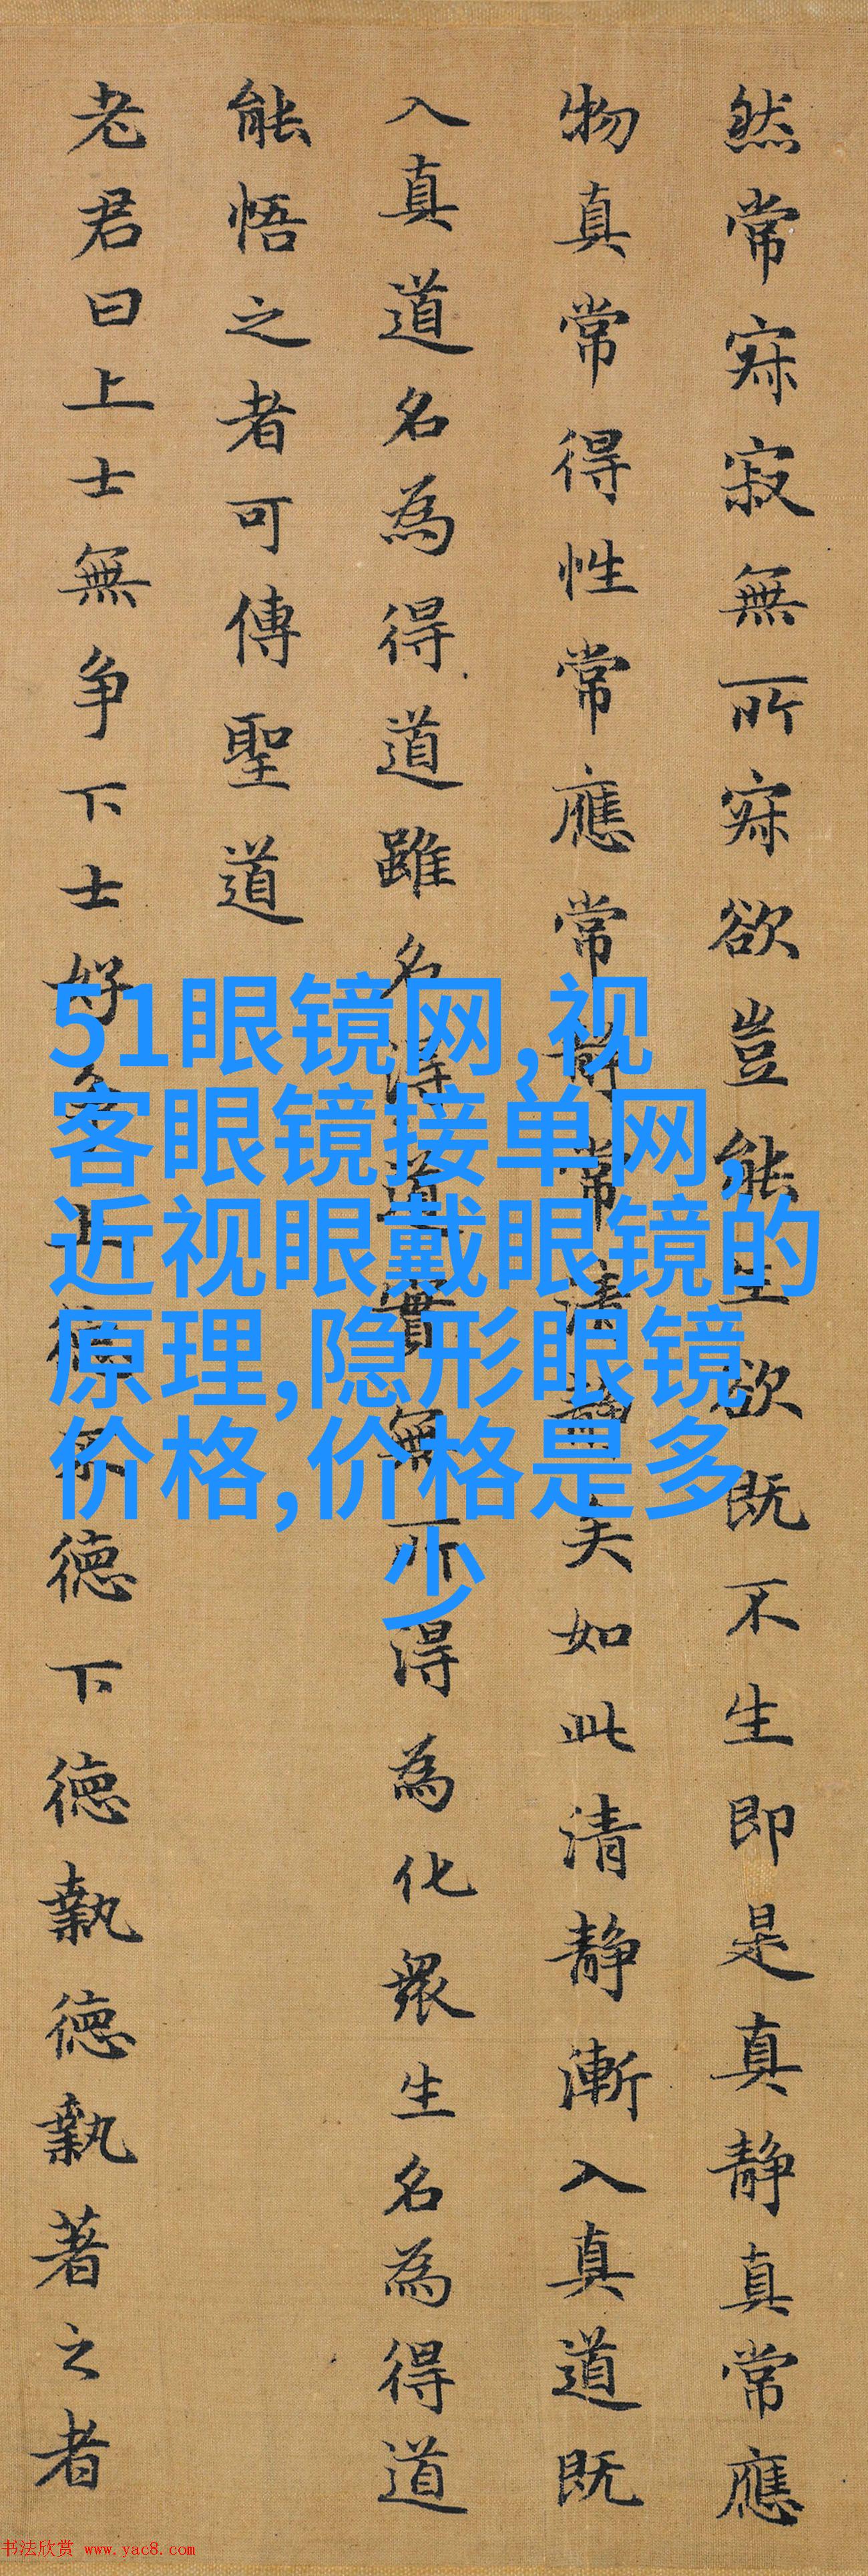 然常寂寂無所寂欲豈能生欲既不生即是真静真常應
物真常得性常應常静常清静矣如此清静漸入真道既
入真道名為得道雖名得道實無所得為化衆生名為得道
能悟之者可傳聖道
老君曰上士無争下士好争上德不德下德執德執著之者
51眼镜网,视
客眼镜接单网,
近视眼戴眼镜的
原理,隐形眼镜
价格,价格是多
少
书法欣赏 www.yac8.com